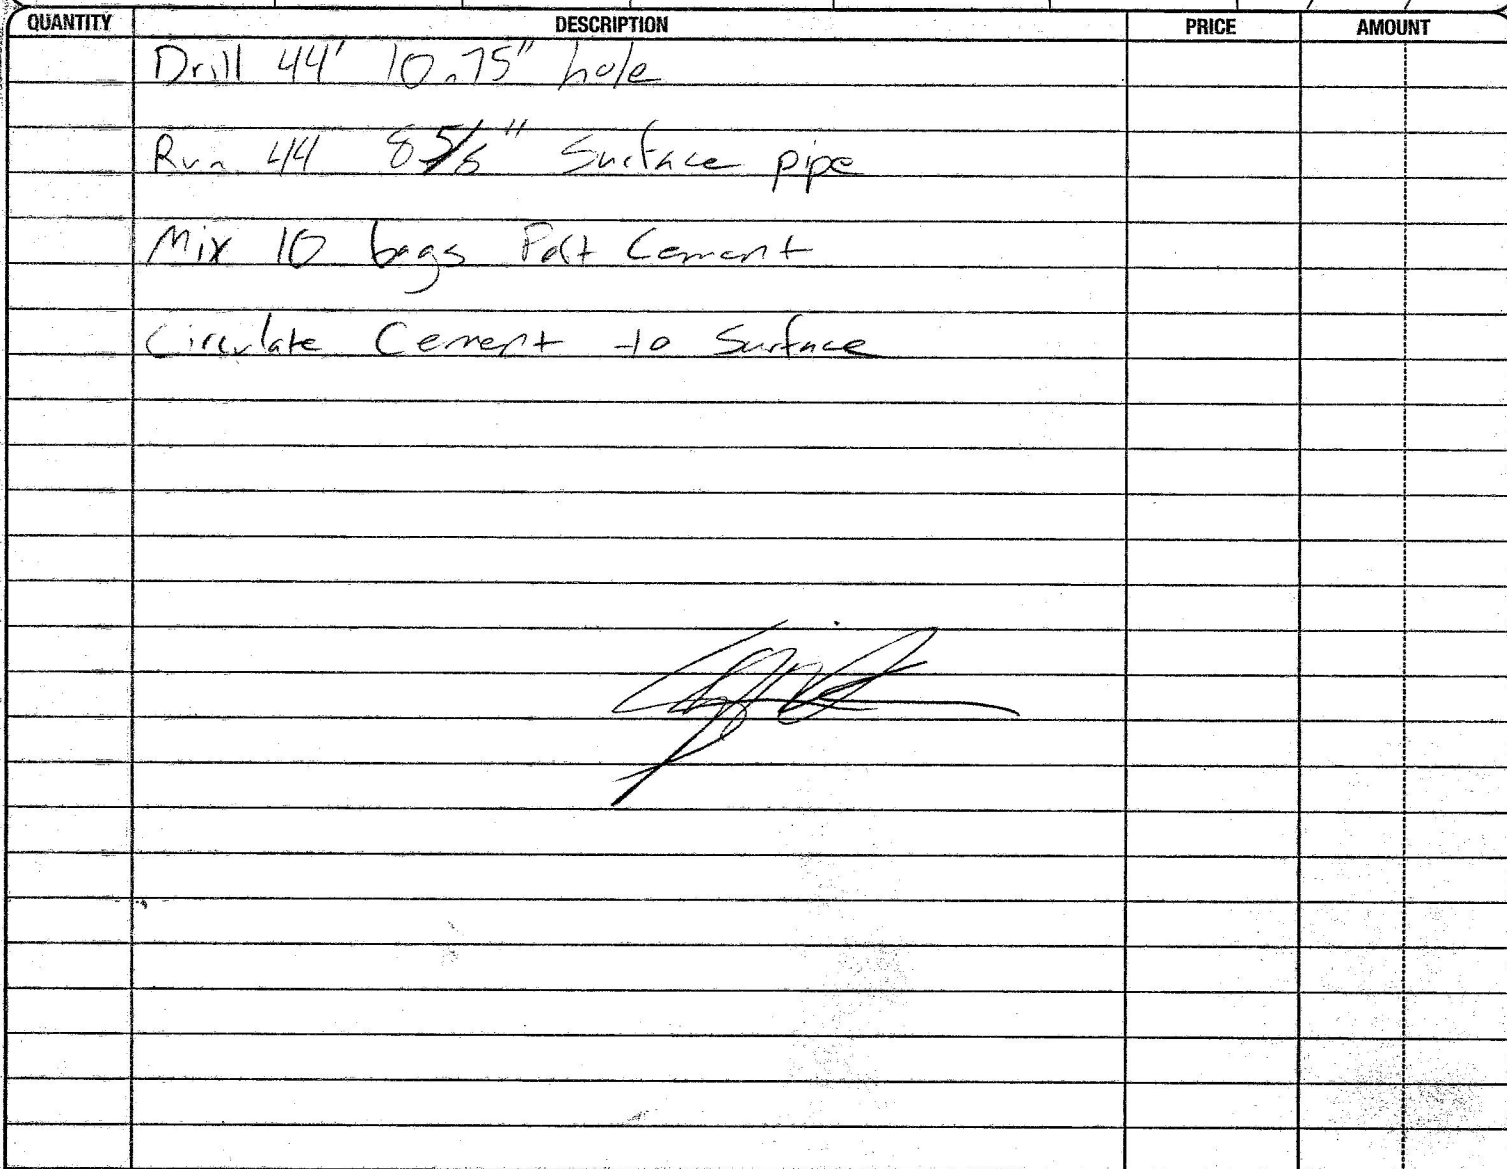 QUANTITY DESCRIPTION PRICE AMOUNT
Drill 44' 10.75" hole
Run 44 8 5/8" Surface pipe
Mix 10 bags Cement
Circulate Cement to Surface